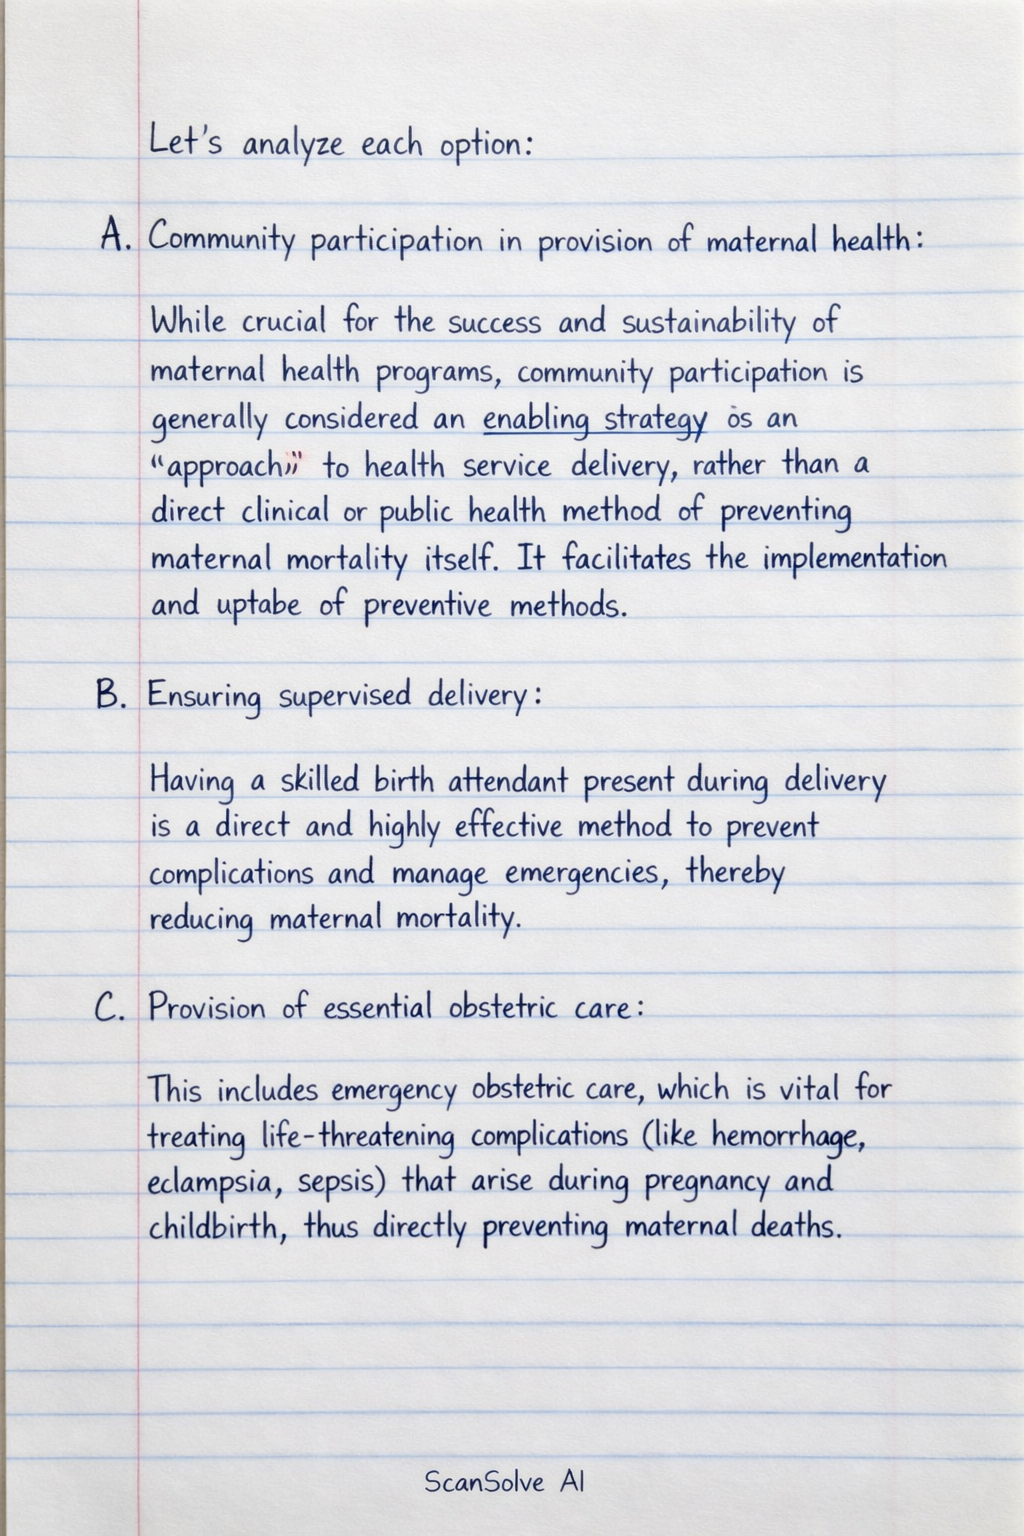 Let's analyze each option:
A. Community participation in provision of maternal health:
While crucial for the success and sustainability of
maternal health programs, community participation is
generally considered an enabling strategy os an
“approach„” to health service delivery, rather than a
direct clinical or public health method of preventing
maternal mortality itself. It facilitates the implementation
and uptabe of preventive methods.
B. Ensuring supervised delivery:
Having a skilled birth attendant present during delivery
is a direct and highly effective method to prevent
complications and manage emergencies, thereby
reducing maternal mortality.
C. Provision of essential obstetric care:
This includes emergency obstetric care, which is vital for
treating life-threatening complications (like hemorrhage,
eclampsia, sepsis) that arise during pregnancy and
childbirth, thus directly preventing maternal deaths.
ScanSolve AI